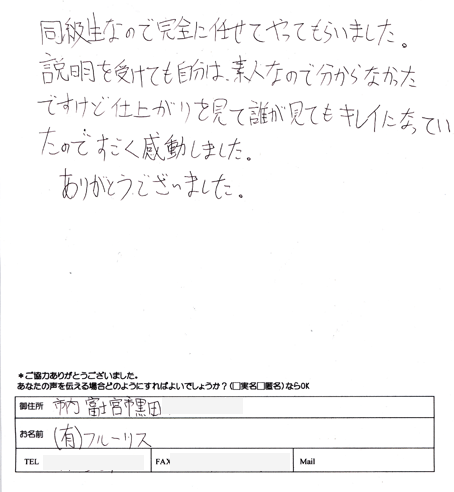 同級生なので完全に任せてやってもらいました。
説明を受けても自分は、素人なので分からなかった
ですけど仕上がりを見て誰が見てもキレイになってい
たのですごく感動しました。
ありがとうございました。
*ご協力ありがとうございました。
あなたの声を伝える場合どのようにすればよいでしょうか?(□実名□匿名)ならOK
御住所 市内 富士宮市黒田
お名前 (有)フルーリス
TEL FAX Mail